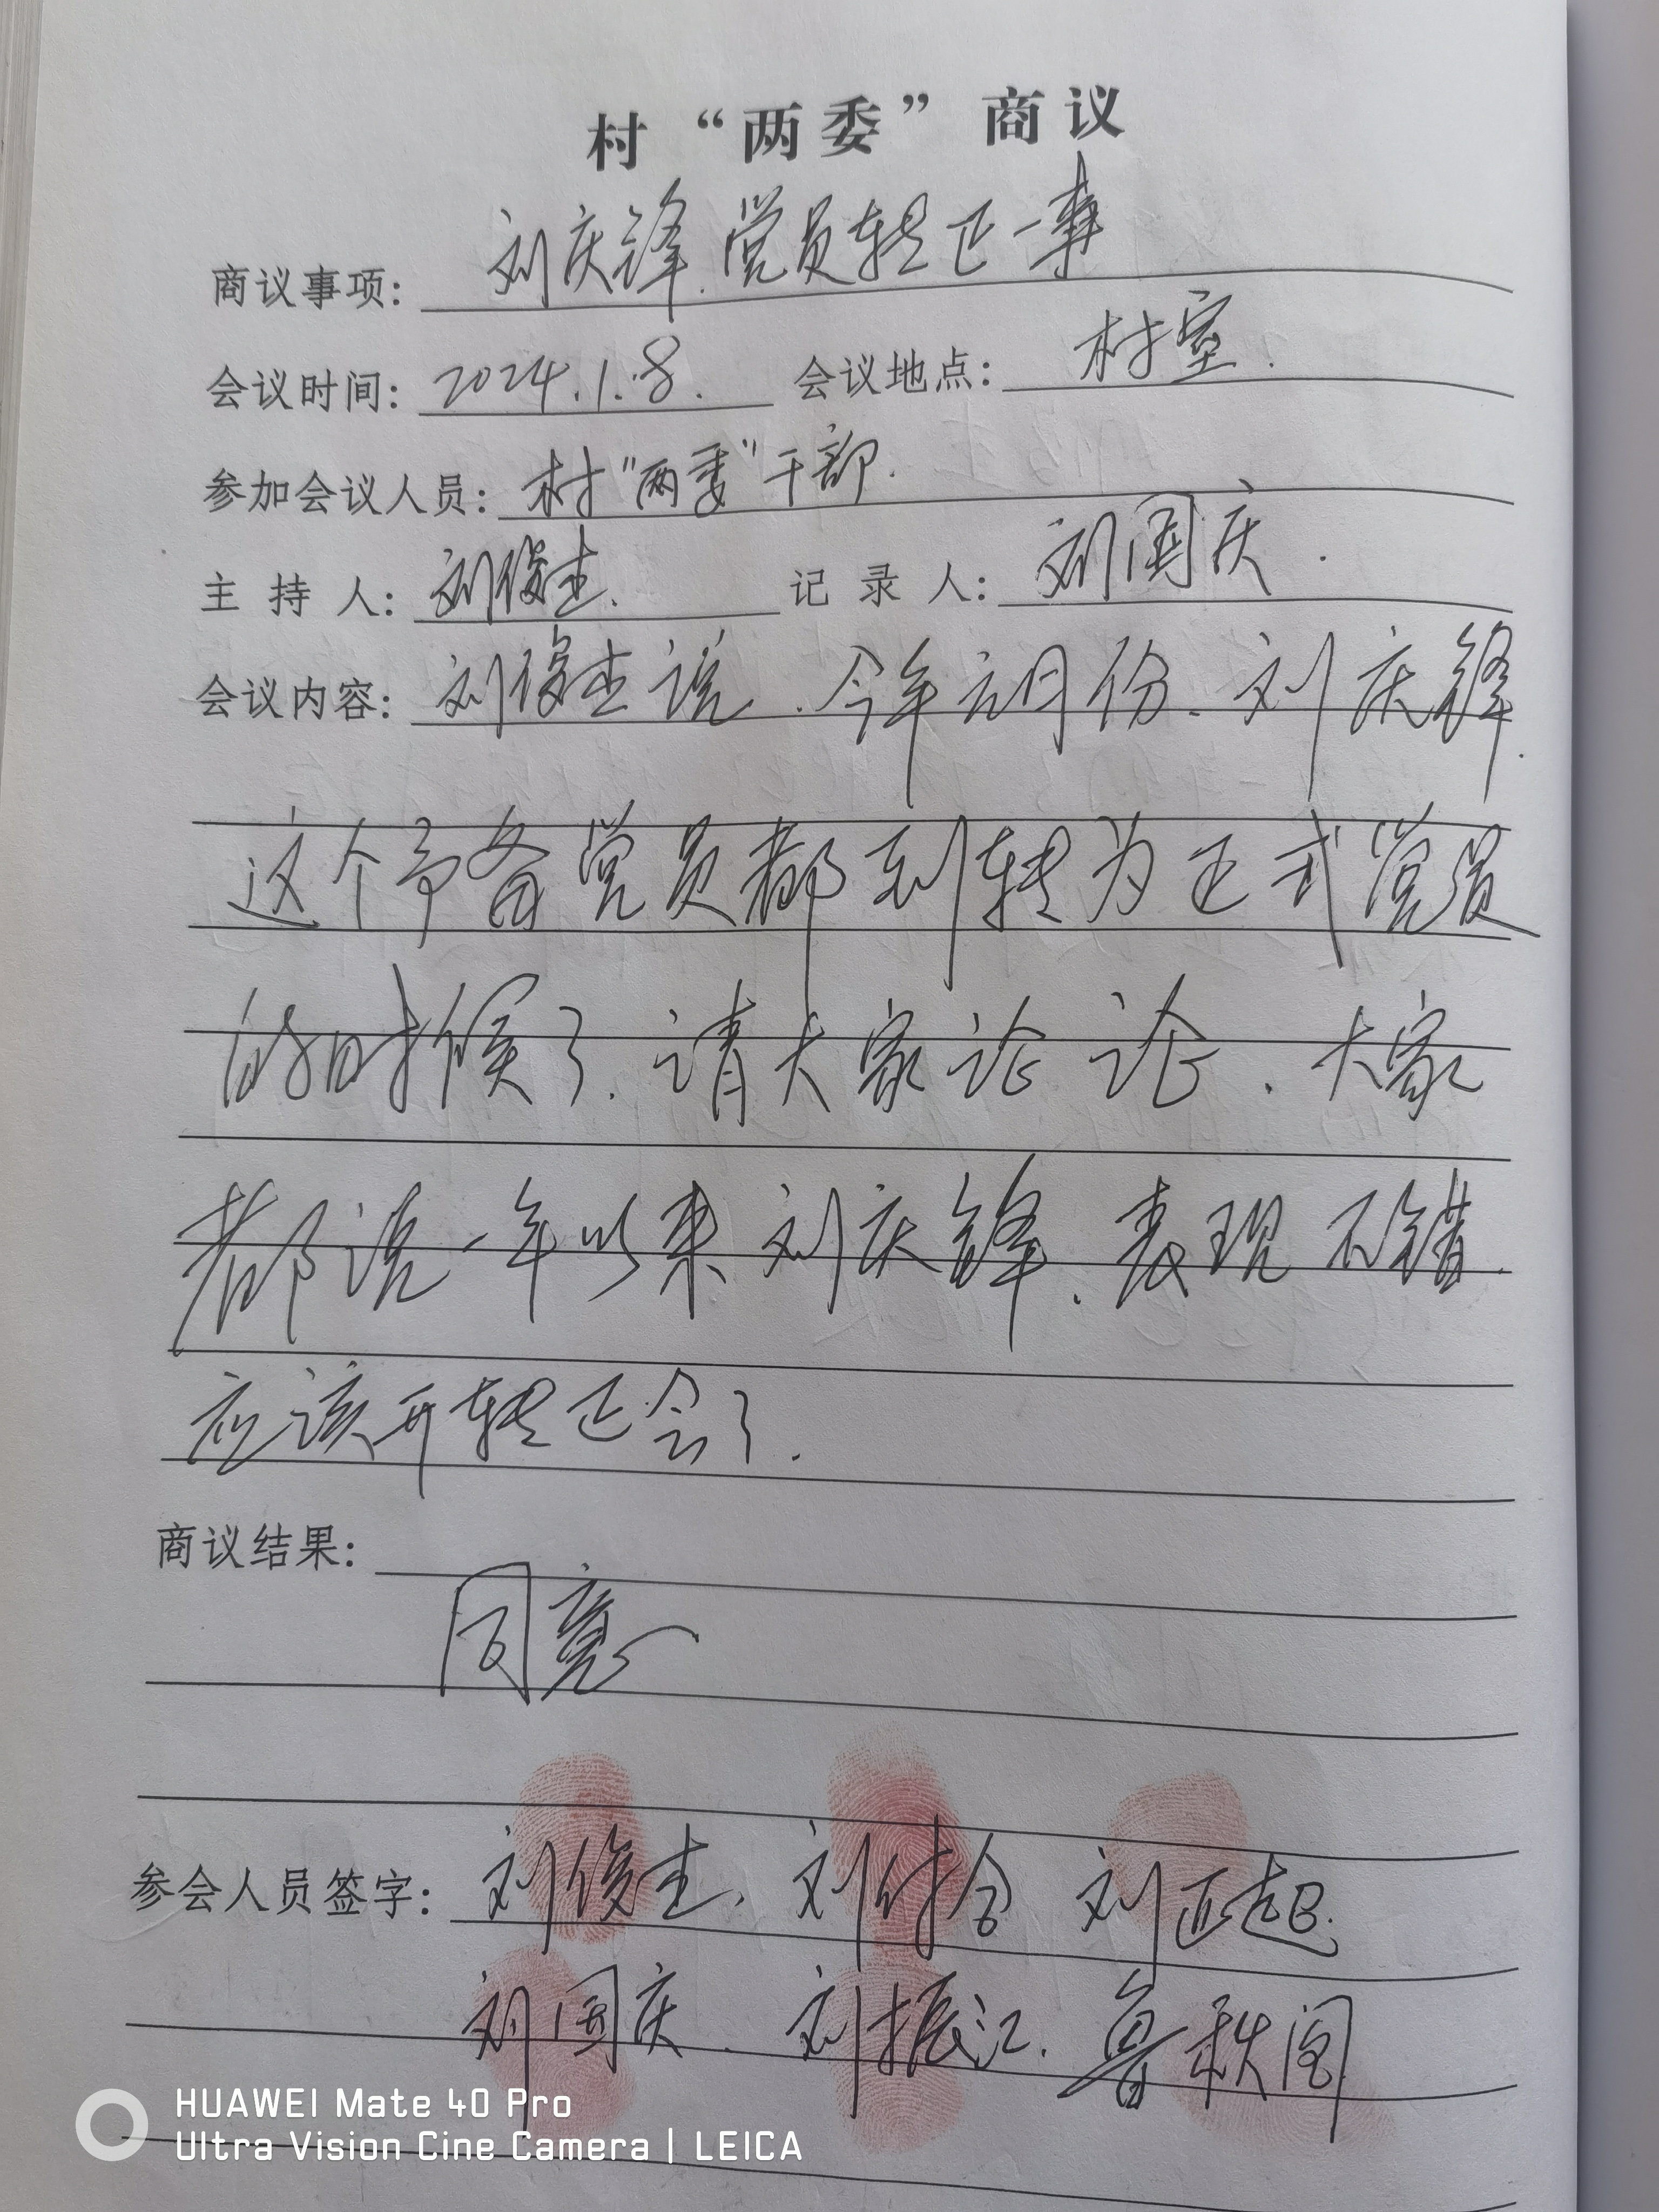 村“两委”商议
商议事项: 刘庆锋.党员转正一事
会议时间: 2024.1.8. 会议地点: 村室.
参加会议人员: 村"两委"干部.
主 持 人: 刘俊杰. 记 录 人: 刘国庆.
会议内容: 刘俊杰说.今年元月份.刘庆锋.
这个予备党员都到转为正式党员
的时候了.请大家论论.大家
都说一年以来刘庆锋.表现不错.
应该开转正会了.
商议结果:
同意
参会人员签字: 刘俊杰. 刘付合 刘正起.
刘国庆. 刘振江. 鲁秋阁
HUAWEI Mate 40 Pro
Ultra Vision Cine Camera | LEICA